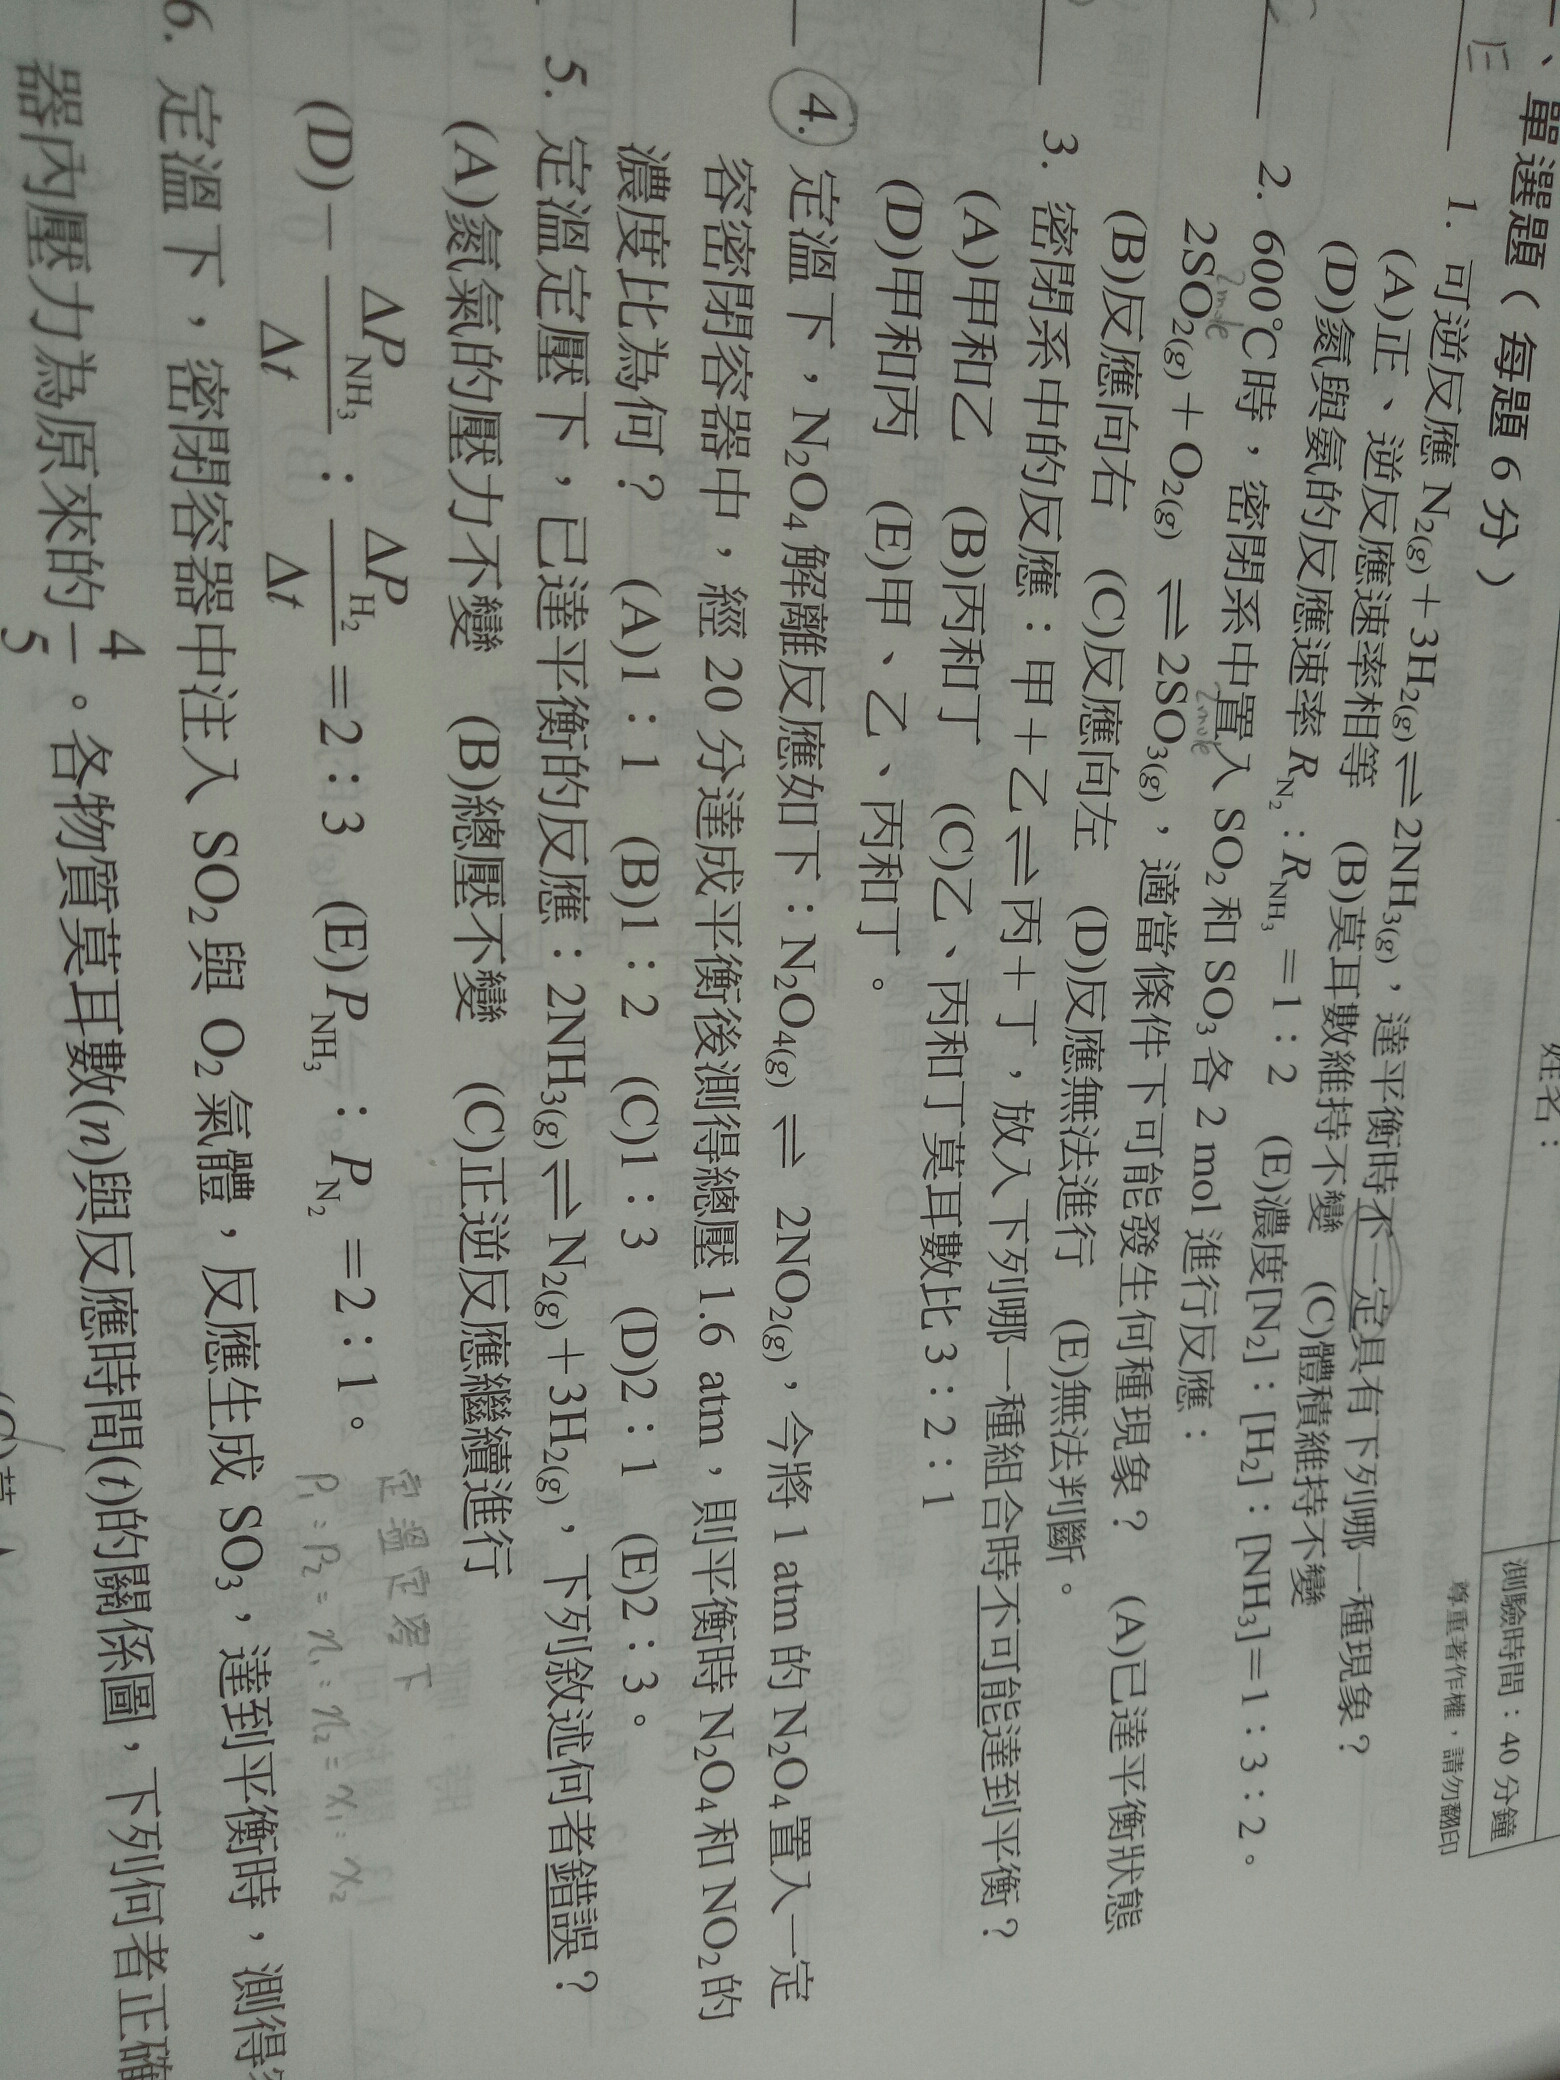 一、單選題（每題 6 分）
姓名：
測驗時間：40 分鐘
尊重著作權，請勿翻印
1. 可逆反應 N₂(g)＋3H₂(g)⇌2NH₃(g)，達平衡時不一定具有下列哪一種現象？
(A)正、逆反應速率相等 (B)莫耳數維持不變 (C)體積維持不變
(D)氮與氨的反應速率 R_N₂：R_NH₃＝1：2 (E)濃度[N₂]：[H₂]：[NH₃]＝1：3：2。
2. 600℃時，密閉系中置入 SO₂ 和 SO₃ 各 2 mol 進行反應：
2mole 2mole
2SO₂(g)＋O₂(g) ⇌ 2SO₃(g)，適當條件下可能發生何種現象？ (A)已達平衡狀態
(B)反應向右 (C)反應向左 (D)反應無法進行 (E)無法判斷。
3. 密閉系中的反應：甲＋乙⇌丙＋丁，放入下列哪一種組合時不可能達到平衡？
(A)甲和乙 (B)丙和丁 (C)乙、丙和丁莫耳數比 3：2：1
(D)甲和丙 (E)甲、乙、丙和丁。
4. 定溫下，N₂O₄ 解離反應如下：N₂O₄(g) ⇌ 2NO₂(g)，今將 1 atm 的 N₂O₄ 置入一定
容密閉容器中，經 20 分達成平衡後測得總壓 1.6 atm，則平衡時 N₂O₄ 和 NO₂ 的
濃度比為何？ (A)1：1 (B)1：2 (C)1：3 (D)2：1 (E)2：3。
5. 定溫定壓下，已達平衡的反應：2NH₃(g)⇌N₂(g)＋3H₂(g)，下列敘述何者錯誤？
(A)氮氣的壓力不變 (B)總壓不變 (C)正逆反應繼續進行
(D)－ΔP_NH₃/Δt：ΔP_H₂/Δt＝2：3 (E)P_NH₃：P_N₂＝2：1。
定溫定容下
P₁：P₂＝n₁：n₂＝x₁：x₂
6. 定溫下，密閉容器中注入 SO₂ 與 O₂ 氣體，反應生成 SO₃，達到平衡時，測得
器內壓力為原來的 4/5。各物質莫耳數(n)與反應時間(t)的關係圖，下列何者正確